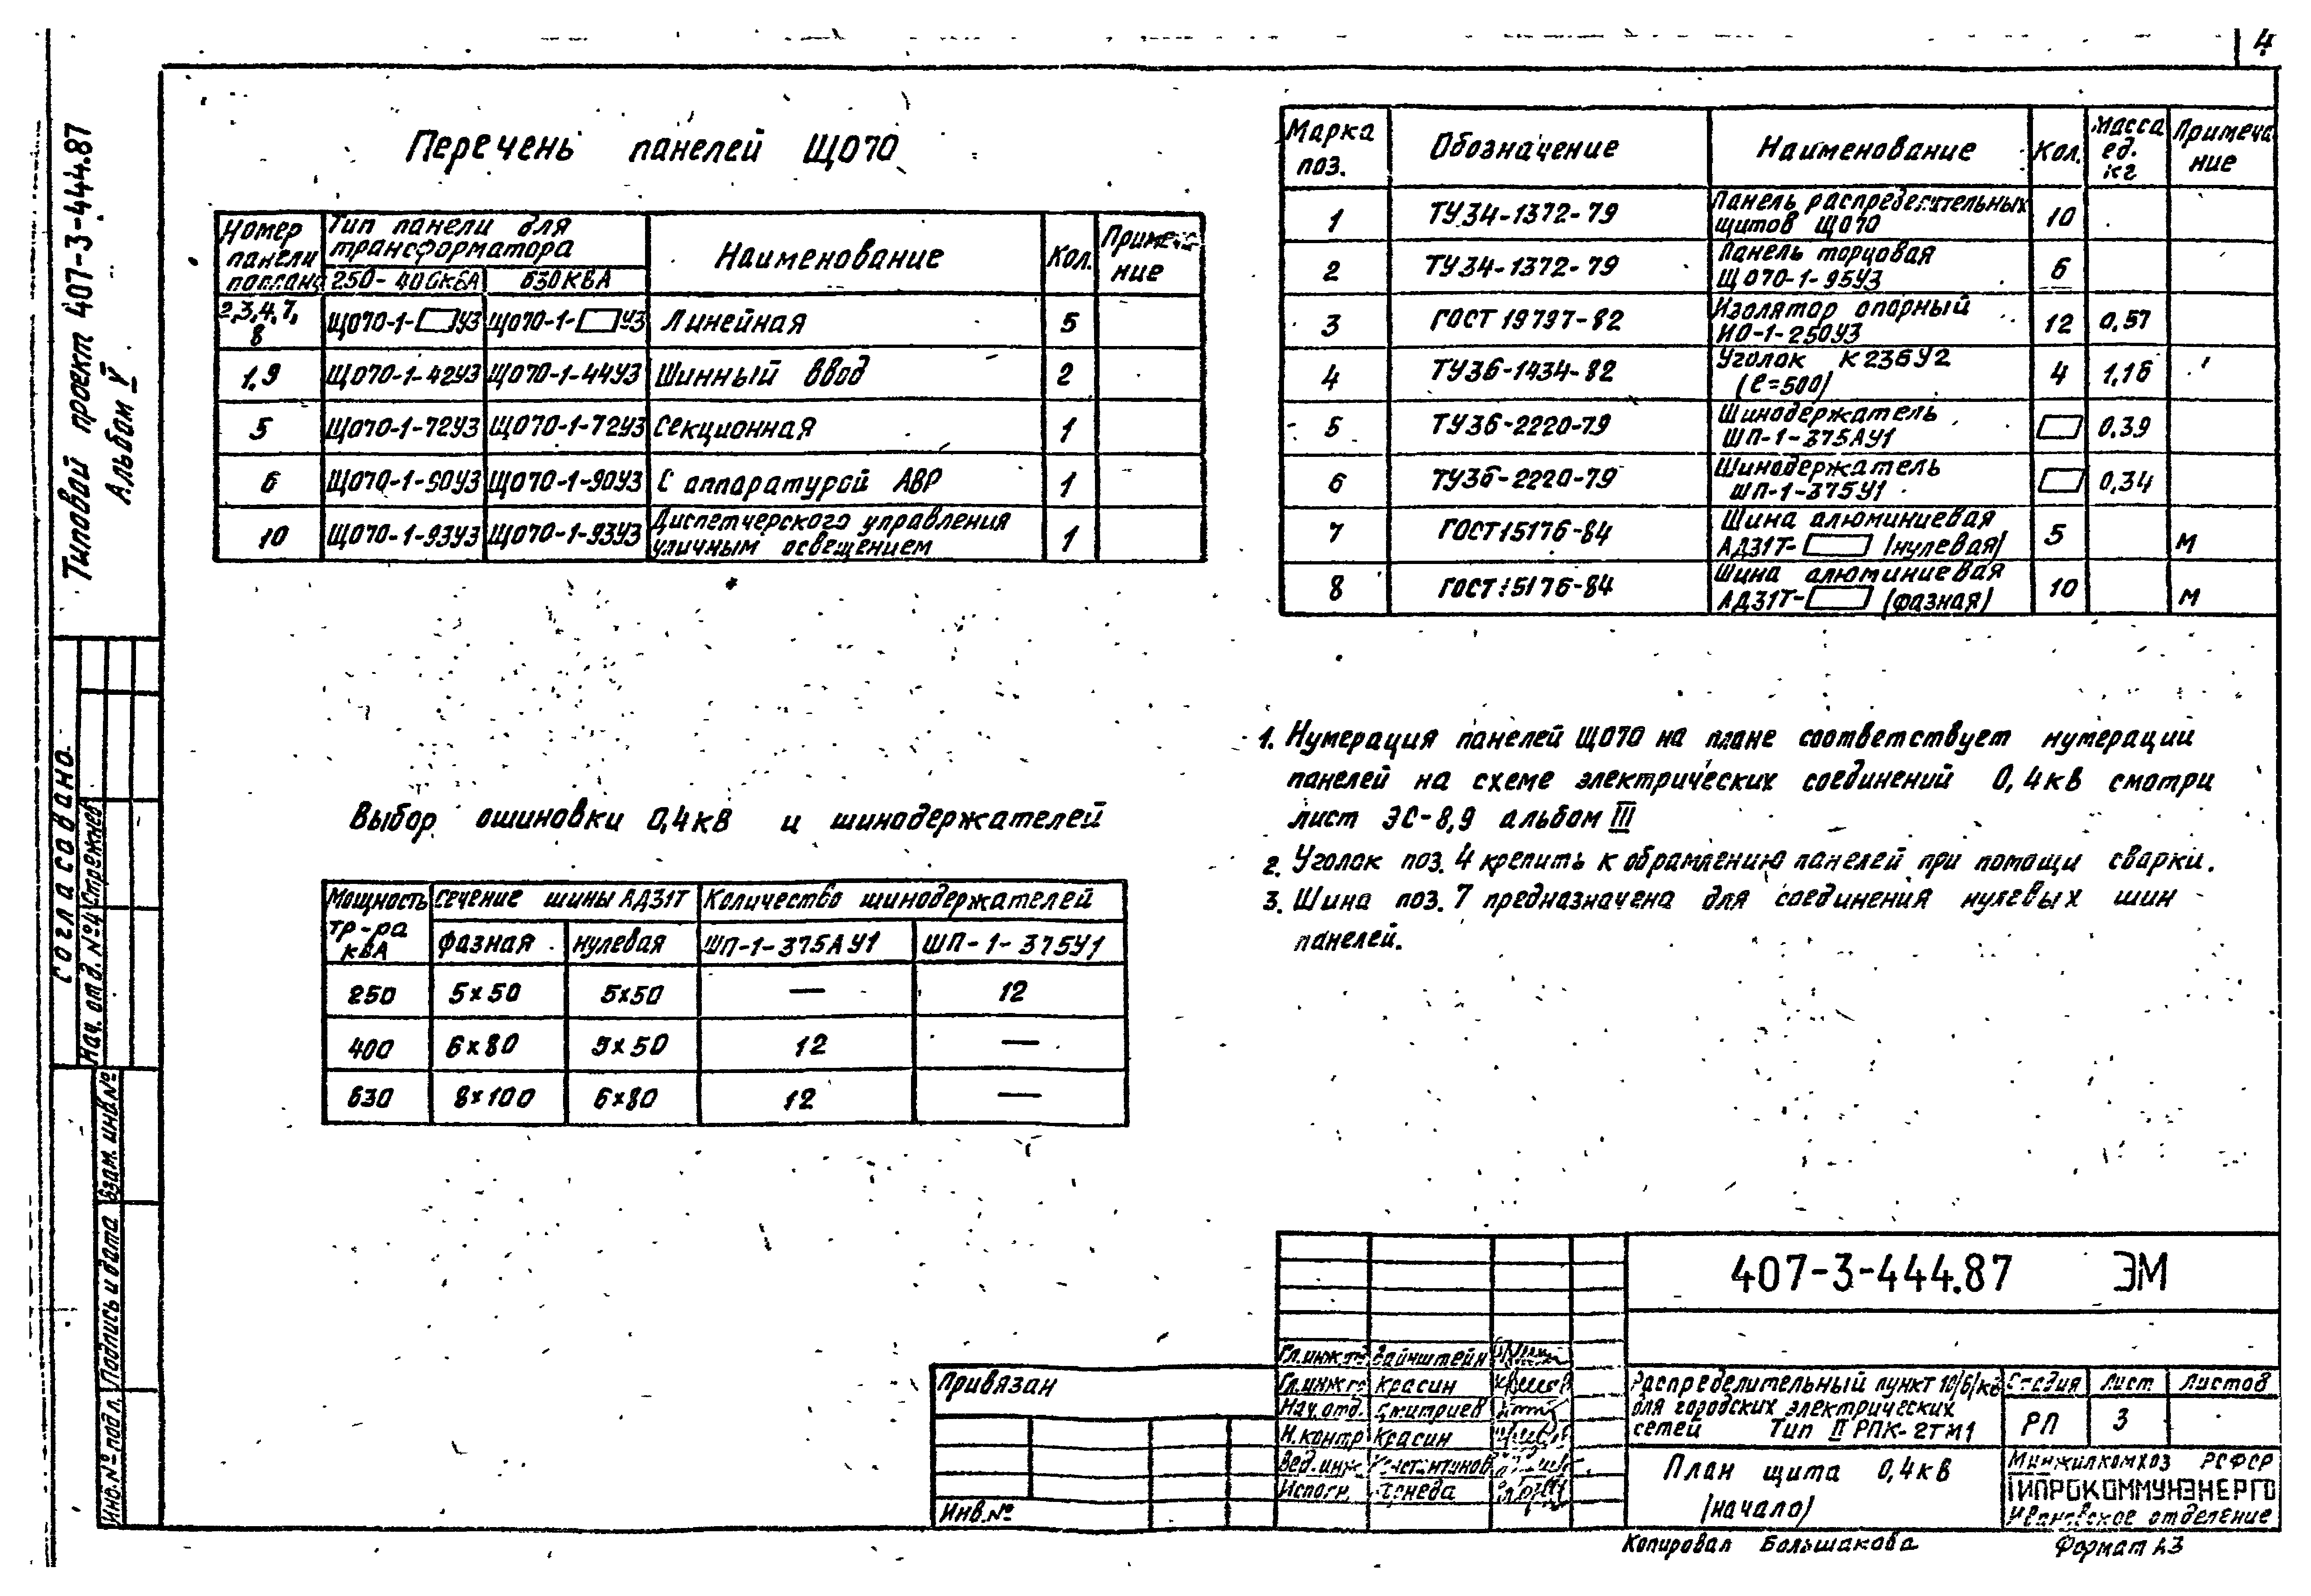 4
Типовой проект 407-3-444.87
Альбом V
Перечень панелей ЩО70
Номер панели по плану | Тип панели для трансформатора | Наименование | Кол. | Примечание
250-400кВА | 630кВА
2,3,4,7,8 | ЩО70-1-▭У3 | ЩО70-1-▭У3 | Линейная | 5
1,9 | ЩО70-1-42У3 | ЩО70-1-44У3 | Шинный ввод | 2
5 | ЩО70-1-72У3 | ЩО70-1-72У3 | Секционная | 1
6 | ЩО70-1-90У3 | ЩО70-1-90У3 | С аппаратурой АВР | 1
10 | ЩО70-1-93У3 | ЩО70-1-93У3 | Диспетчерского управления уличным освещением | 1
Марка поз. | Обозначение | Наименование | Кол. | Масса ед. кг | Примечание
1 | ТУ34-1372-79 | Панель распределительных щитов ЩО70 | 10
2 | ТУ34-1372-79 | Панель торцовая ЩО70-1-95У3 | 6
3 | ГОСТ 19797-82 | Изолятор опорный ИО-1-250У3 | 12 | 0,57
4 | ТУ36-1434-82 | Уголок К236У2 (ℓ=500) | 4 | 1,16
5 | ТУ36-2220-79 | Шинодержатель ШП-1-375АУ1 | ▭ | 0,39
6 | ТУ36-2220-79 | Шинодержатель ШП-1-375У1 | ▭ | 0,34
7 | ГОСТ 15176-84 | Шина алюминиевая АД31Т-▭ (нулевая) | 5 | м
8 | ГОСТ 15176-84 | Шина алюминиевая АД31Т-▭ (фазная) | 10 | м
Выбор ошиновки 0,4кВ и шинодержателей
Мощность тр-ра кВА | Сечение шины АД31Т | Количество шинодержателей
фазная | нулевая | ШП-1-375АУ1 | ШП-1-375У1
250 | 5×50 | 5×50 | — | 12
400 | 6×80 | 5×50 | 12 | —
630 | 8×100 | 6×80 | 12 | —
1. Нумерация панелей ЩО70 на плане соответствует нумерации
панелей на схеме электрических соединений 0,4кВ смотри
лист ЭС-8,9 альбом III
2. Уголок поз. 4 крепить к обрамлению панелей при помощи сварки.
3. Шина поз. 7 предназначена для соединения нулевых шин
панелей.
Согласовано.
Нач. отд. №4 Стрежнев
Взам. инв.№
Подпись и дата
Инв.№ подл.
Привязан
Инв.№
Гл.инж.
Гл.инж. Красин
Нач.отд. Дмитриев
Н.контр Красин
Вед.инж. Константинов
Исполн.
407-3-444.87 ЭМ
Распределительный пункт 10(6)кВ
для городских электрических
сетей Тип II РПК-2ТМ1
Стадия | Лист | Листов
РП | 3
План щита 0,4кВ
(начало)
Минжилкомхоз РСФСР
ГИПРОКОММУНЭНЕРГО
Ивановское отделение
Копировал Большакова
Формат А3